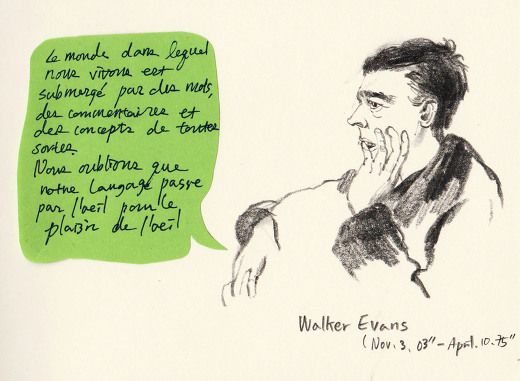 Le monde dans lequel
nous vivons est
submergé par des mots,
des commentaires et
des concepts de toutes
sortes.
Nous oublions que
notre langage passe
par l'œil pour le
plaisir de l'œil
Walker Evans
(Nov. 3. 03" - April. 10. 75"